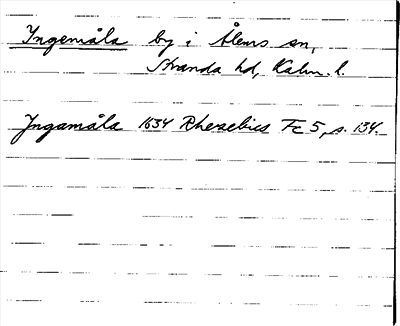 Ingemåla by i Ålems sn,
Stranda hd, Kalm. l.
Yngamåla 1634 Rhezelius Fc 5, s. 134.